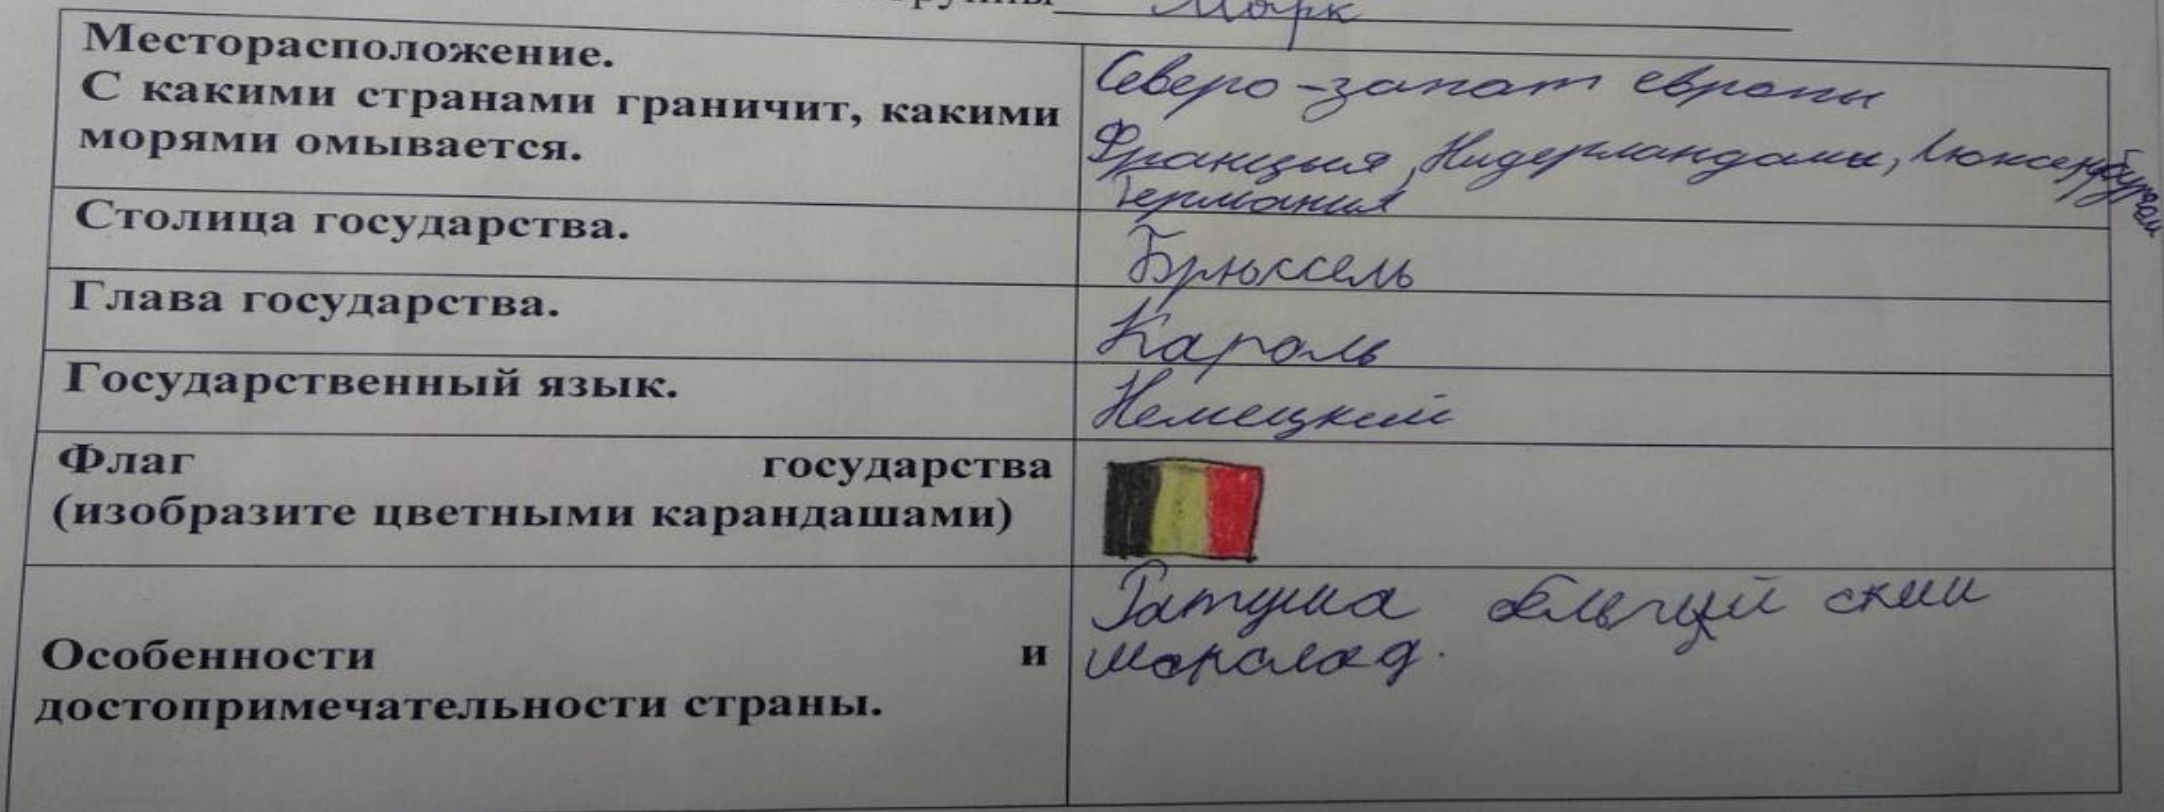 Марк
Месторасположение.
С какими странами граничит, какими
морями омывается.
Северо-запат европы
Францыя, Нидерландамы, Люксенбургом
Германия
Столица государства.
Брюссель
Глава государства.
Кароль
Государственный язык.
Немецкий
Флаг государства
(изобразите цветными карандашами)
Особенности и
достопримечательности страны.
Ратуша